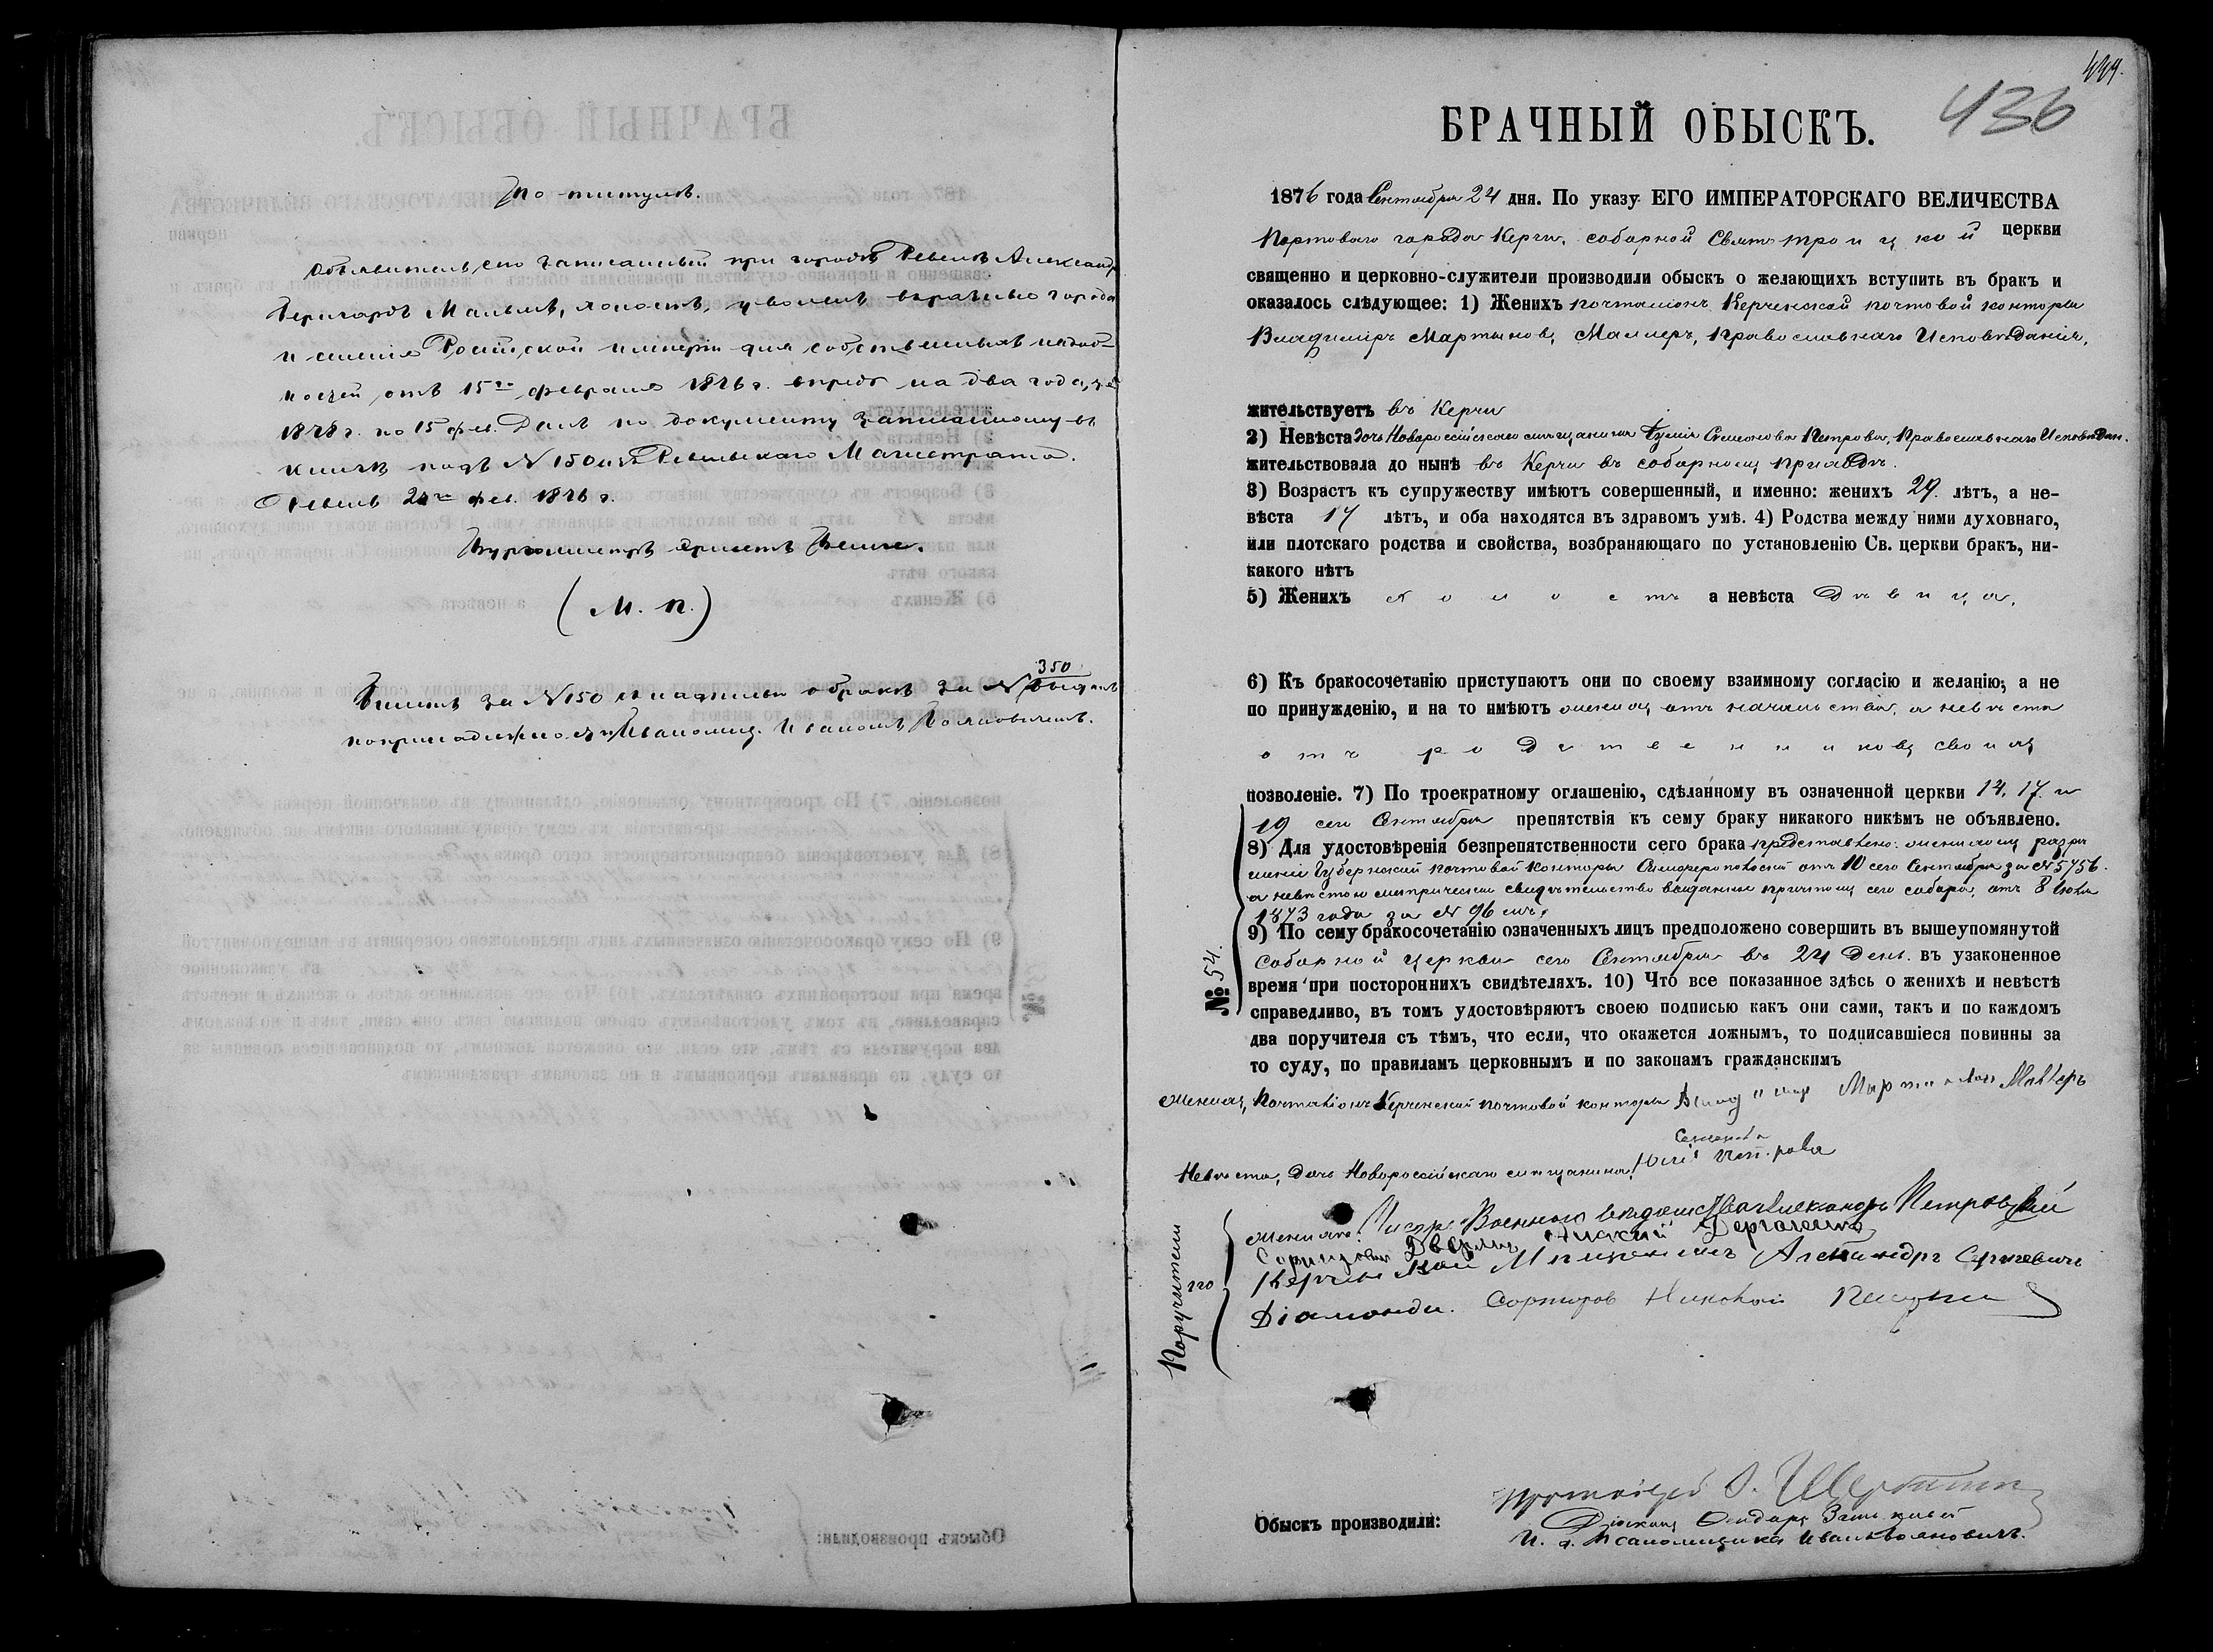 По титулѣ.
Объявитель сего записанный при городѣ Ревелѣ Александръ
Бернгардъ Мальмъ, холостъ, уволенъ въ разные города
и селенія Россійской имперіи для собственныхъ надоб-
ностей отъ 15го февраля 1876 г. впредь на два года, т. е.
1878 г. по 15 фев. Данъ по документу записанному въ
книгѣ подъ № 150 изъ Ревельскаго Магистрата.
Ревель 24го фев. 1876 г.
Бургомистръ
(М. п.)
Билетъ за № 150 съ надписью о бракѣ за № 350 выданъ
по принадлежности Иваномъ Вояновичемъ.
449.
436
БРАЧНЫЙ ОБЫСКЪ.
1876 года Сентября 24 дня. По указу ЕГО ИМПЕРАТОРСКАГО ВЕЛИЧЕСТВА
Портоваго города Керчи, соборной Свято Троицкой церкви
священно и церковно-служители производили обыскъ о желающихъ вступить въ бракъ и
оказалось слѣдующее: 1) Женихъ почталіонъ Керченской почтовой конторы
Владиміръ Мартыновъ Маллеръ, Православнаго Исповѣданія,
жительствуетъ въ Керчи
2) Невѣста дочь Новороссійскаго мѣщанина Юлія Семенова Петрова, Православнаго Исповѣдан.
жительствовала до нынѣ въ Керчи въ соборномъ приходѣ.
3) Возрастъ къ супружеству имѣютъ совершенный, и именно: женихъ 29. лѣтъ, а не-
вѣста 17 лѣтъ, и оба находятся въ здравомъ умѣ. 4) Родства между ними духовнаго,
или плотскаго родства и свойства, возбраняющаго по установленію Св. церкви бракъ, ни-
какого нѣтъ
5) Женихъ холостъ а невѣста Дѣвица,
6) Къ бракосочетанію приступаютъ они по своему взаимному согласію и желанію, а не
по принужденію, и на то имѣютъ женихъ отъ начальства, а невѣста
отъ родственниковъ своихъ
позволеніе. 7) По троекратному оглашенію, сдѣланному въ означенной церкви 14, 17. и
19 сего Сентября препятствія къ сему браку никакого никѣмъ не объявлено.
8) Для удостовѣренія безпрепятственности сего брака представлено: женихомъ разрѣ
шеніе Губернской почтовой конторы Симферопольской отъ 10 сего Сентября за № 5756.
а невѣстою метрическое свидѣтельство выданное причтомъ сего собора, отъ 8 Іюля
1873 года за № 96 мъ,
№ 54.
9) По сему бракосочетанію означенныхъ лицъ предположено совершить въ вышеупомянутой
соборной церкви сего Сентября въ 24 день. въ узаконенное
время при постороннихъ свидѣтеляхъ. 10) Что все показанное здѣсь о женихѣ и невѣстѣ
справедливо, въ томъ удостовѣряютъ своею подписью какъ они сами, такъ и по каждомъ
два поручителя съ тѣмъ, что если, что окажется ложнымъ, то подписавшіеся повинны за
то суду, по правиламъ церковнымъ и по законамъ гражданскимъ
Женихъ, Почталіонъ Керченской почтовой конторы Владиміръ Мартыновъ Маллеръ
Невѣста, дочь Новороссійскаго мѣщанина Юлія Семенова Петрова
Поручители по
женихѣ: Писарь Военнаго вѣдомства Александръ Петровскій
Керченской Мѣщанинъ Александръ Сергѣевичъ
Діаманди. Сортировщ Николай
Обыскъ производили:
Протоіерей
Діаконъ
И. д. Псаломщика Иванъ Вояновичъ.